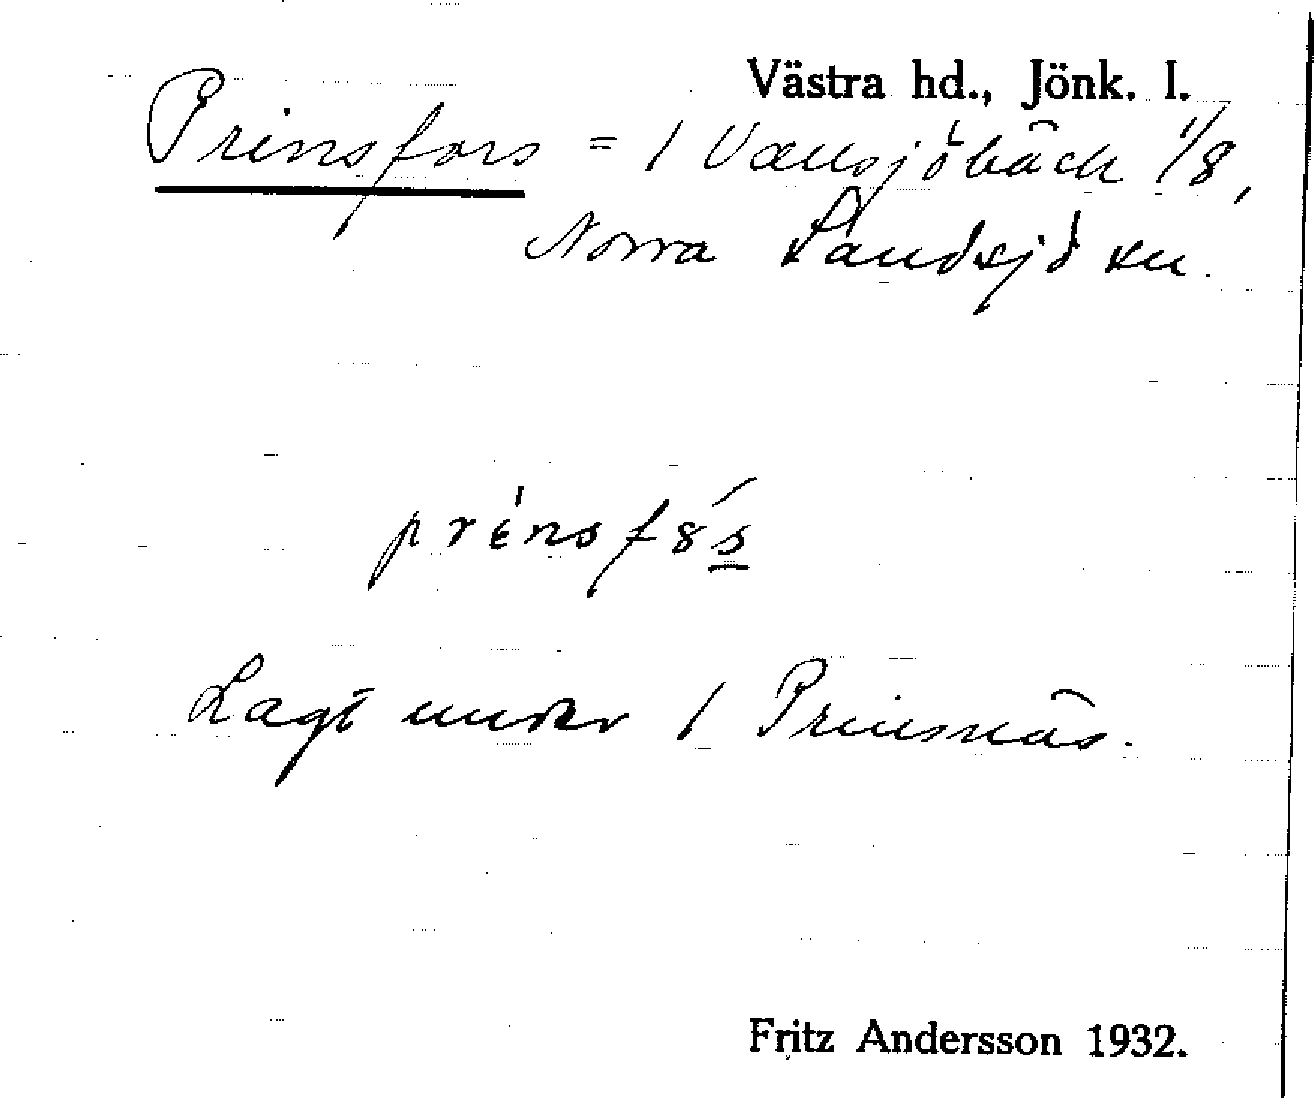 Västra hd., Jönk. l.
Prinsfors = 1 Vallsjöbäck 1/8,
Norra Sandsjö sn.
prénsf8́s
Lagt under 1 Prinsnäs.
Fritz Andersson 1932.